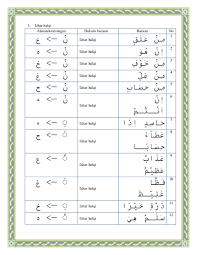 1. Izhar halqi
Alasan/keterangan Hukum bacaan Bacaan No
نْ <- ع Izhar halqi مِنْ عَلَقٍ 1
نْ <- ه Izhar halqi إِنْ هُوَ 2
نْ <- خ Izhar halqi مِنْ خَوْفٍ 3
نْ <- غ Izhar halqi مِنْ غِلٍّ 4
نْ <- ح Izhar halqi مِنْ حِسَابٍ 5
Izhar halqi إِنْ 6
أَنْتُمْ
Izhar halqi حَاسِدٍ إِذَا 7
Izhar halqi عَطَاءً 8
حِسَابًا
Izhar halqi عَذَابٌ 9
عَظِيْمٌ
Izhar halqi فَظًّا 10
Izhar halqi ذَرَّةٍ خَيْرًا 11
Izhar halqi هِيَ 12